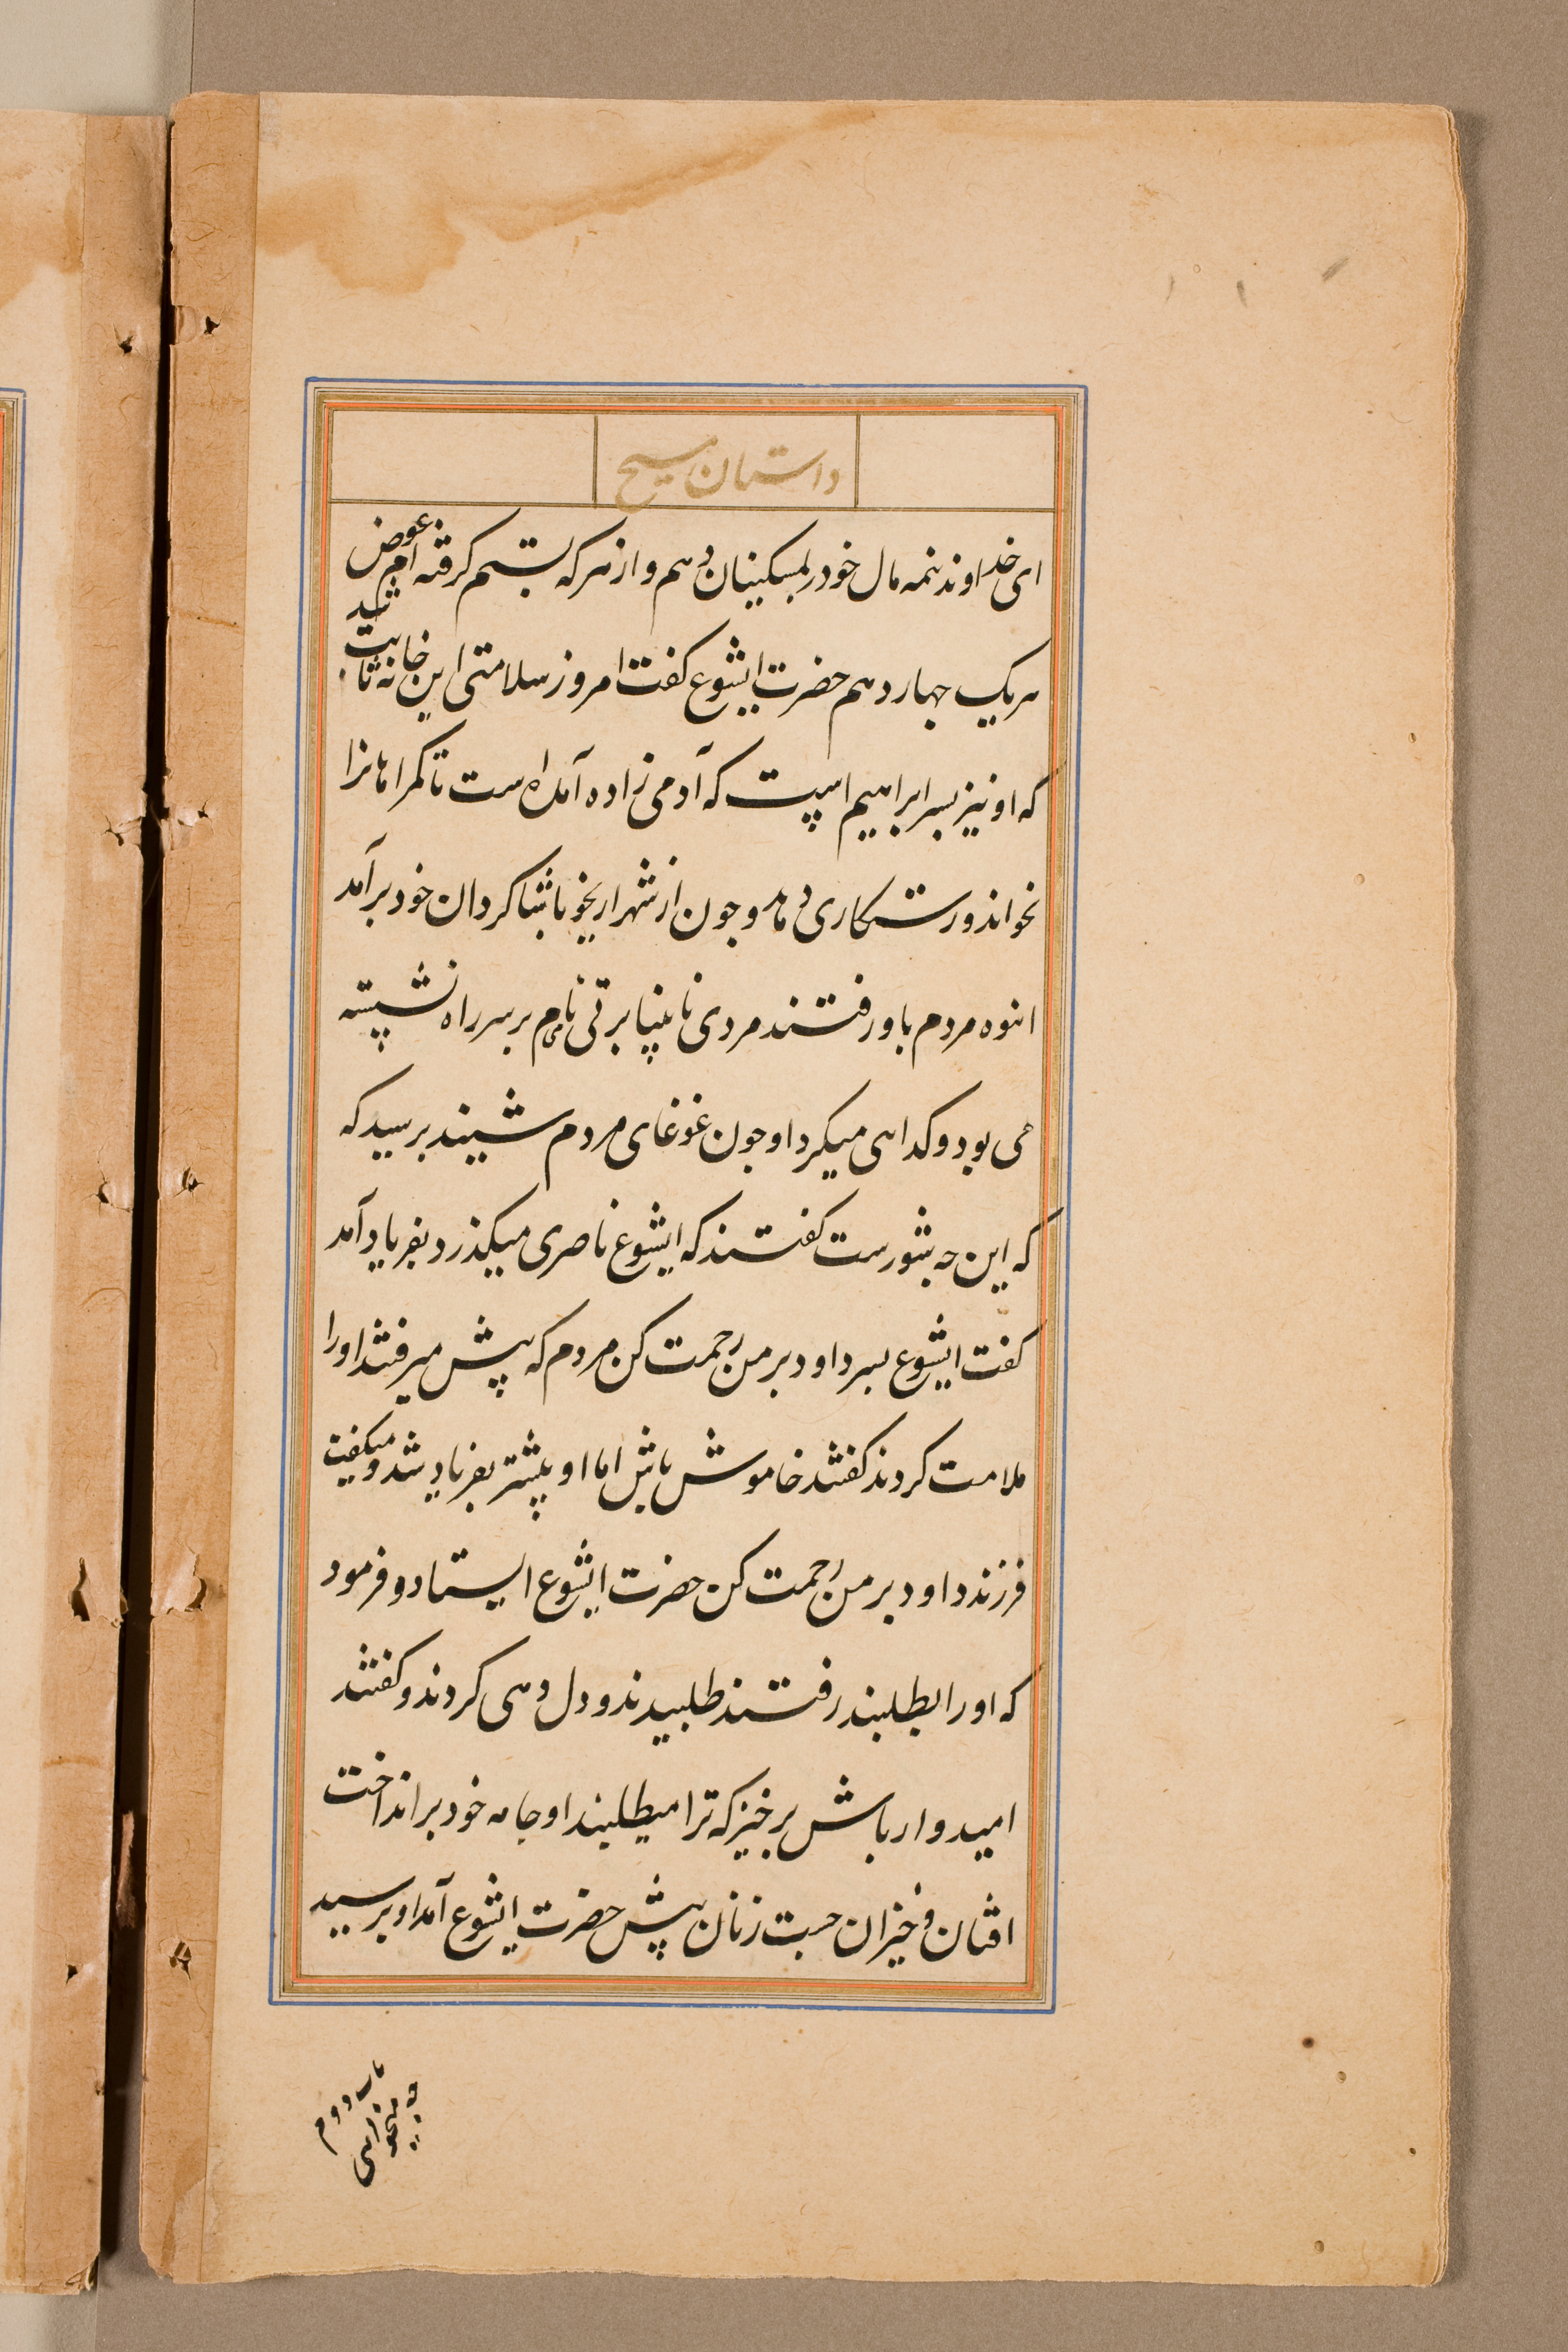 داستان مسیح
ای خداوند نیمه مال خود بمسکینان دهم و از هرکه بستم کرفته ام عوض
هر یک جهار دهم حضرت ایشوع کفت امروز سلامتی این خانه ثابت شد
که او نیز بسر ابراهیم است که آدمی زاده آمده است تا کمراهانرا
بخواند و رستکاری دهد و جون از شهر اریخو با شاکردان خود برآمد
انبوه مردم باو رفتند مردی نابینا برتی نام بر سر راه نشسته
می بود و کدایی میکرد او جون غوغای مردم شنید برسید که
که این چه شورست کفتند که ایشوع ناصری میکذرد بفریاد آمد
کفت ایشوع بسر داود بر من رحمت کن مردم که پیش میرفتند اورا
ملامت کردند کفتند خاموش باش اما او بیشتر بفریاد شد و میکفت
فرزند داود بر من رحمت کن حضرت ایشوع ایستاد و فرمود
که اورا بطلبند رفتند طلبیدند و دل دهی کردند و کفتند
امیدوار باش برخیز که ترا میطلبند او جامه خود بر انداخت
افتان و خیزان جست زنان پیش حضرت ایشوع آمد او برسید
چه میخواهی
باب دوم